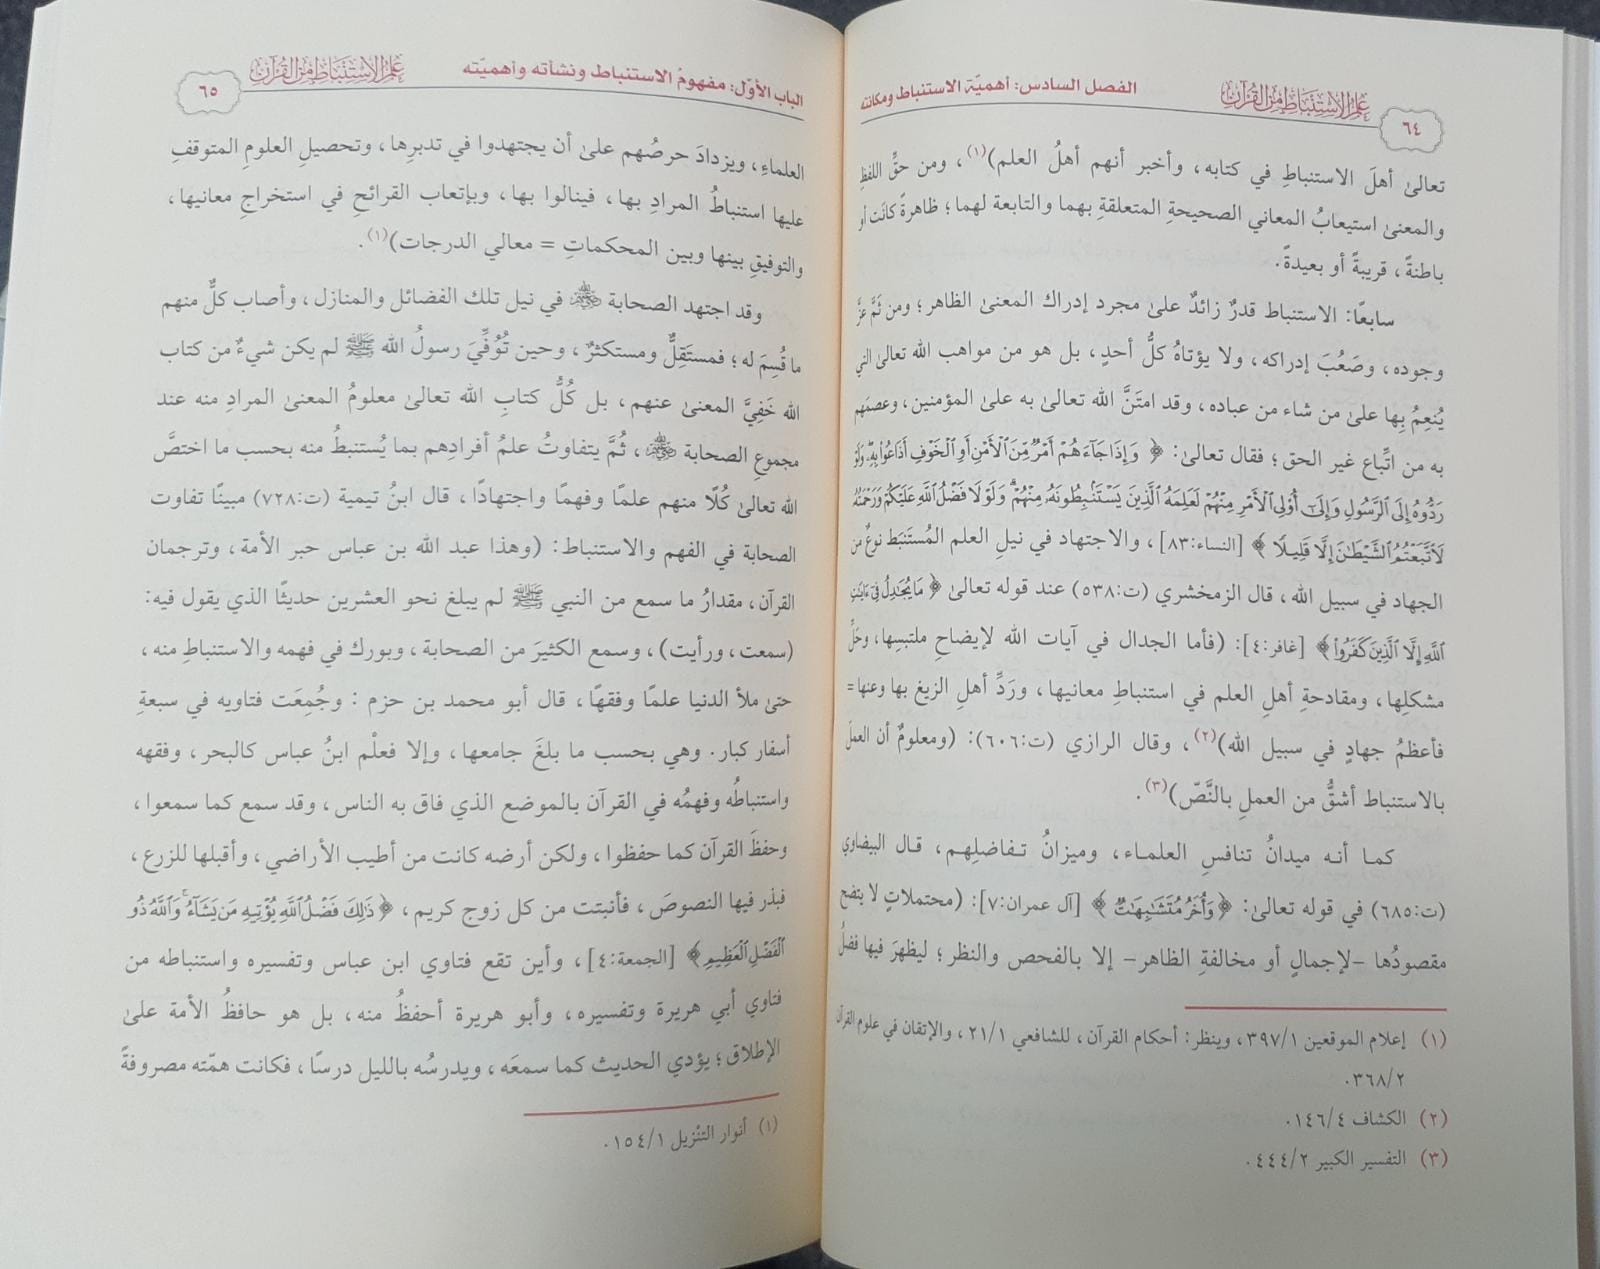 ٦٤
علم الاستنباط من القرآن
الفصل السادس: أهميّة الاستنباط ومكانته
تعالىٰ أهلَ الاستنباطِ في كتابه، وأخبر أنهم أهلُ العلم)(١)، ومن حقِّ اللفظِ
والمعنىٰ استيعابُ المعاني الصحيحةِ المتعلقةِ بهما والتابعة لهما؛ ظاهرةً كانت أو
باطنةً، قريبةً أو بعيدةً.
سابعًا: الاستنباط قدرٌ زائدٌ علىٰ مجرد إدراك المعنىٰ الظاهر؛ ومن ثَمَّ عزَّ
وجوده، وصَعُبَ إدراكه، ولا يؤتاهُ كلُّ أحدٍ، بل هو من مواهب الله تعالىٰ التي
يُنعِمُ بِها علىٰ من شاء من عباده، وقد امتَنَّ الله تعالىٰ به علىٰ المؤمنين، وعصمَهم
به من اتِّباع غير الحق؛ فقال تعالىٰ: ﴿وَإِذَا جَآءَهُمْ أَمْرٌ مِّنَ ٱلْأَمْنِ أَوِ ٱلْخَوْفِ أَذَاعُوا۟ بِهِۦ ۖ وَلَوْ
رَدُّوهُ إِلَى ٱلرَّسُولِ وَإِلَىٰٓ أُو۟لِى ٱلْأَمْرِ مِنْهُمْ لَعَلِمَهُ ٱلَّذِينَ يَسْتَنۢبِطُونَهُۥ مِنْهُمْ ۗ وَلَوْلَا فَضْلُ ٱللَّهِ عَلَيْكُمْ وَرَحْمَتُهُۥ
لَٱتَّبَعْتُمُ ٱلشَّيْطَٰنَ إِلَّا قَلِيلًا﴾ [النساء:٨٣]، والاجتهاد في نيلِ العلم المُستَنبَط نوعٌ من
الجهاد في سبيل الله، قال الزمخشري (ت:٥٣٨) عند قوله تعالىٰ ﴿مَا يُجَٰدِلُ فِىٓ ءَايَٰتِ
ٱللَّهِ إِلَّا ٱلَّذِينَ كَفَرُوا۟﴾ [غافر:٤]: (فأما الجدال في آيات الله لإيضاحِ ملتبسِها، وحَلِّ
مشكلِها، ومقادحةِ أهلِ العلم في استنباطِ معانيها، ورَدِّ أهلِ الزيغ بها وعنها=
فأعظمُ جهادٍ في سبيل الله)(٢)، وقال الرازي (ت:٦٠٦): (ومعلومٌ أن العملَ
بالاستنباط أشقُّ من العملِ بالنَّصّ)(٣).
كما أنه ميدانُ تنافسِ العلماء، وميزانُ تفاضلِهم، قال البيضاوي
(ت:٦٨٥) في قوله تعالىٰ: ﴿وَأُخَرُ مُتَشَٰبِهَٰتٌ﴾ [آل عمران:٧]: (محتملاتٍ لا يتضح
مقصودُها -لإجمالٍ أو مخالفةِ الظاهر- إلا بالفحص والنظر؛ ليظهرَ فيها فضلُ
(١) إعلام الموقعين ٣٩٧/١، وينظر: أحكام القرآن، للشافعي ٢١/١، والإتقان في علوم القرآن
٣٦٨/٢.
(٢) الكشاف ١٤٦/٤.
(٣) التفسير الكبير ٤٤٤/٢.
الباب الأوّل: مفهومُ الاستنباط ونشأته وأهميّته
علم الاستنباط من القرآن
٦٥
العلماءِ، ويزدادَ حرصُهم علىٰ أن يجتهدوا في تدبرِها، وتحصيلِ العلومِ المتوقفِ
عليها استنباطُ المرادِ بها، فينالوا بها، وبإتعاب القرائحِ في استخراجِ معانيها،
والتوفيقِ بينها وبين المحكماتِ = معالي الدرجات)(١).
وقد اجتهد الصحابة ﵃ في نيل تلك الفضائل والمنازل، وأصاب كلٌّ منهم
ما قُسِمَ له؛ فمستَقِلٌّ ومستكثرٌ، وحين تُوُفِّيَ رسولُ الله ﷺ لم يكن شيءٌ من كتاب
الله خَفِيَّ المعنىٰ عنهم، بل كُلُّ كتابِ الله تعالىٰ معلومُ المعنىٰ المرادِ منه عند
مجموعِ الصحابة ﵃، ثُمَّ يتفاوتُ علمُ أفرادِهم بما يُستنبطُ منه بحسب ما اختصَّ
الله تعالىٰ كُلًا منهم علمًا وفهمًا واجتهادًا، قال ابنُ تيمية (ت:٧٢٨) مبينًا تفاوت
الصحابة في الفهم والاستنباط: (وهذا عبد الله بن عباس حبر الأمة، وترجمان
القرآن، مقدارُ ما سمع من النبي ﷺ لم يبلغ نحو العشرين حديثًا الذي يقول فيه:
(سمعت، ورأيت)، وسمع الكثيرَ من الصحابة، وبورك في فهمه والاستنباطِ منه،
حتىٰ ملأ الدنيا علمًا وفقهًا، قال أبو محمد بن حزم : وجُمِعَت فتاويه في سبعةِ
أسفار كبار. وهي بحسب ما بلغَ جامعها، وإلا فعلْم ابنُ عباس كالبحر، وفقهه
واستنباطُه وفهمُه في القرآن بالموضع الذي فاق به الناس، وقد سمع كما سمعوا،
وحفظَ القرآن كما حفظوا، ولكن أرضه كانت من أطيب الأراضي، وأقبلها للزرع،
فبذر فيها النصوصَ، فأنبتت من كل زوج كريم، ﴿ذَٰلِكَ فَضْلُ ٱللَّهِ يُؤْتِيهِ مَن يَشَآءُ ۚ وَٱللَّهُ ذُو
ٱلْفَضْلِ ٱلْعَظِيمِ﴾ [الجمعة:٤]، وأين تقع فتاوي ابن عباس وتفسيره واستنباطه من
فتاوي أبي هريرة وتفسيره، وأبو هريرة أحفظُ منه، بل هو حافظُ الأمة علىٰ
الإطلاق؛ يؤدي الحديث كما سمعَه، ويدرسُه بالليل درسًا، فكانت همّته مصروفةً
(١) أنوار التنْزيل ١٥٤/١.